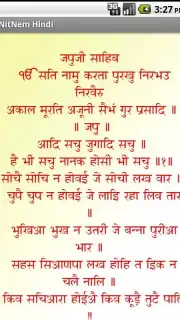 3:27 P
NitNem Hindi
जपुजी साहिब
ੴ सति नामु करता पुरखु निरभउ
निरवैरु
अकाल मूरति अजूनी सैभं गुर प्रसादि ॥
॥ जपु ॥
आदि सचु जुगादि सचु ॥
है भी सचु नानक होसी भी सचु ॥१॥
सोचै सोचि न होवई जे सोची लख वार ॥
चुपै चुप न होवई जे लाइ रहा लिव तार
॥
भुखिआ भुख न उतरी जे बन्ना पुरीआ
भार ॥
सहस सिआणपा लख होहि त इिक न
चलै नालि ॥
किव सचिआरा होईऐ किव कूड़ै तुटै पालि
॥